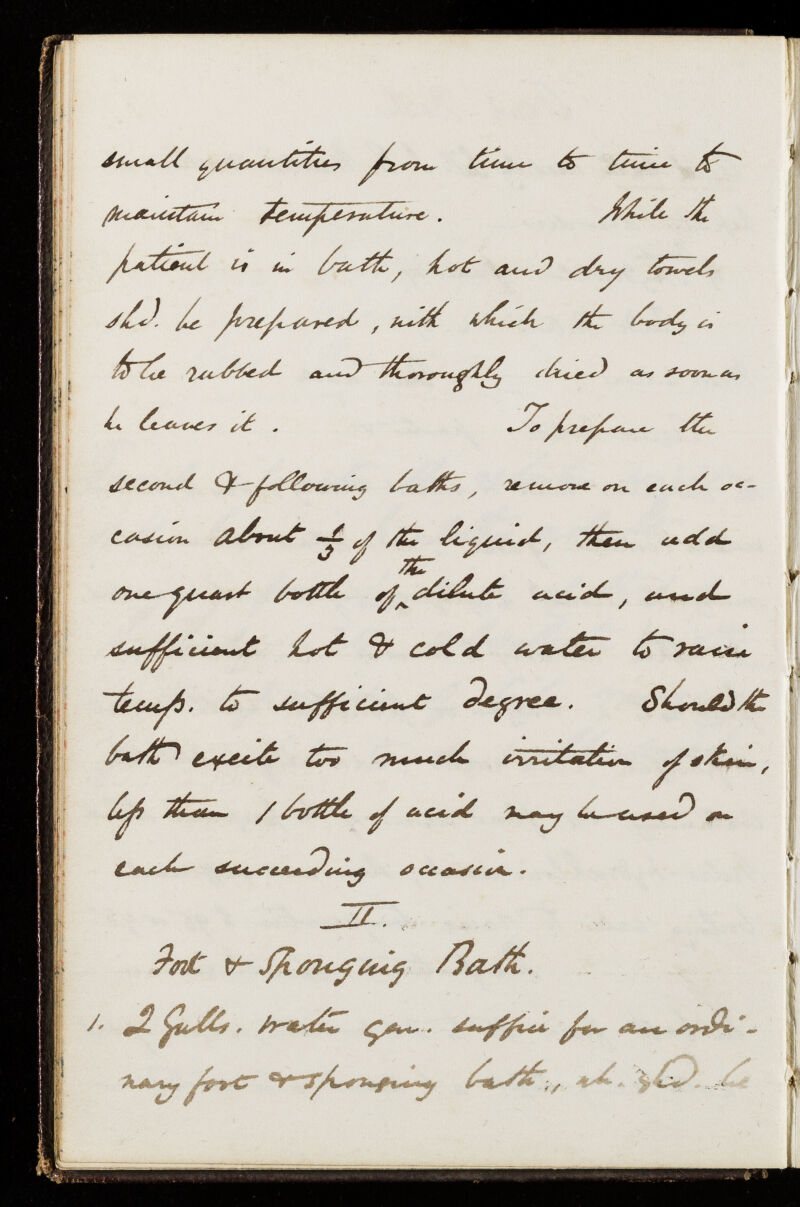 small quantities from time to time to
maintain temperature. While the
patient is in bath, hot and dry towels
shd. be prepared, with which the body is
to be rubbed and thoroughly dried as soon as
he leaves it. To prepare the
second & following baths, remove on each oc-
casion about 1/3 of the liquid, then add
one quart bottle of the dilute acid, and
sufficient hot & cold water to raise
temp. to sufficient degree. Should the
bath excite too much irritation of skin,
less than 1 bottle of acid may be used on
each succeeding occasion.
II.
Foot & Sponging Bath.
1. 2 Galls. water gen. suffice for an ordi-
nary foot & sponging bath, wh. shd. be